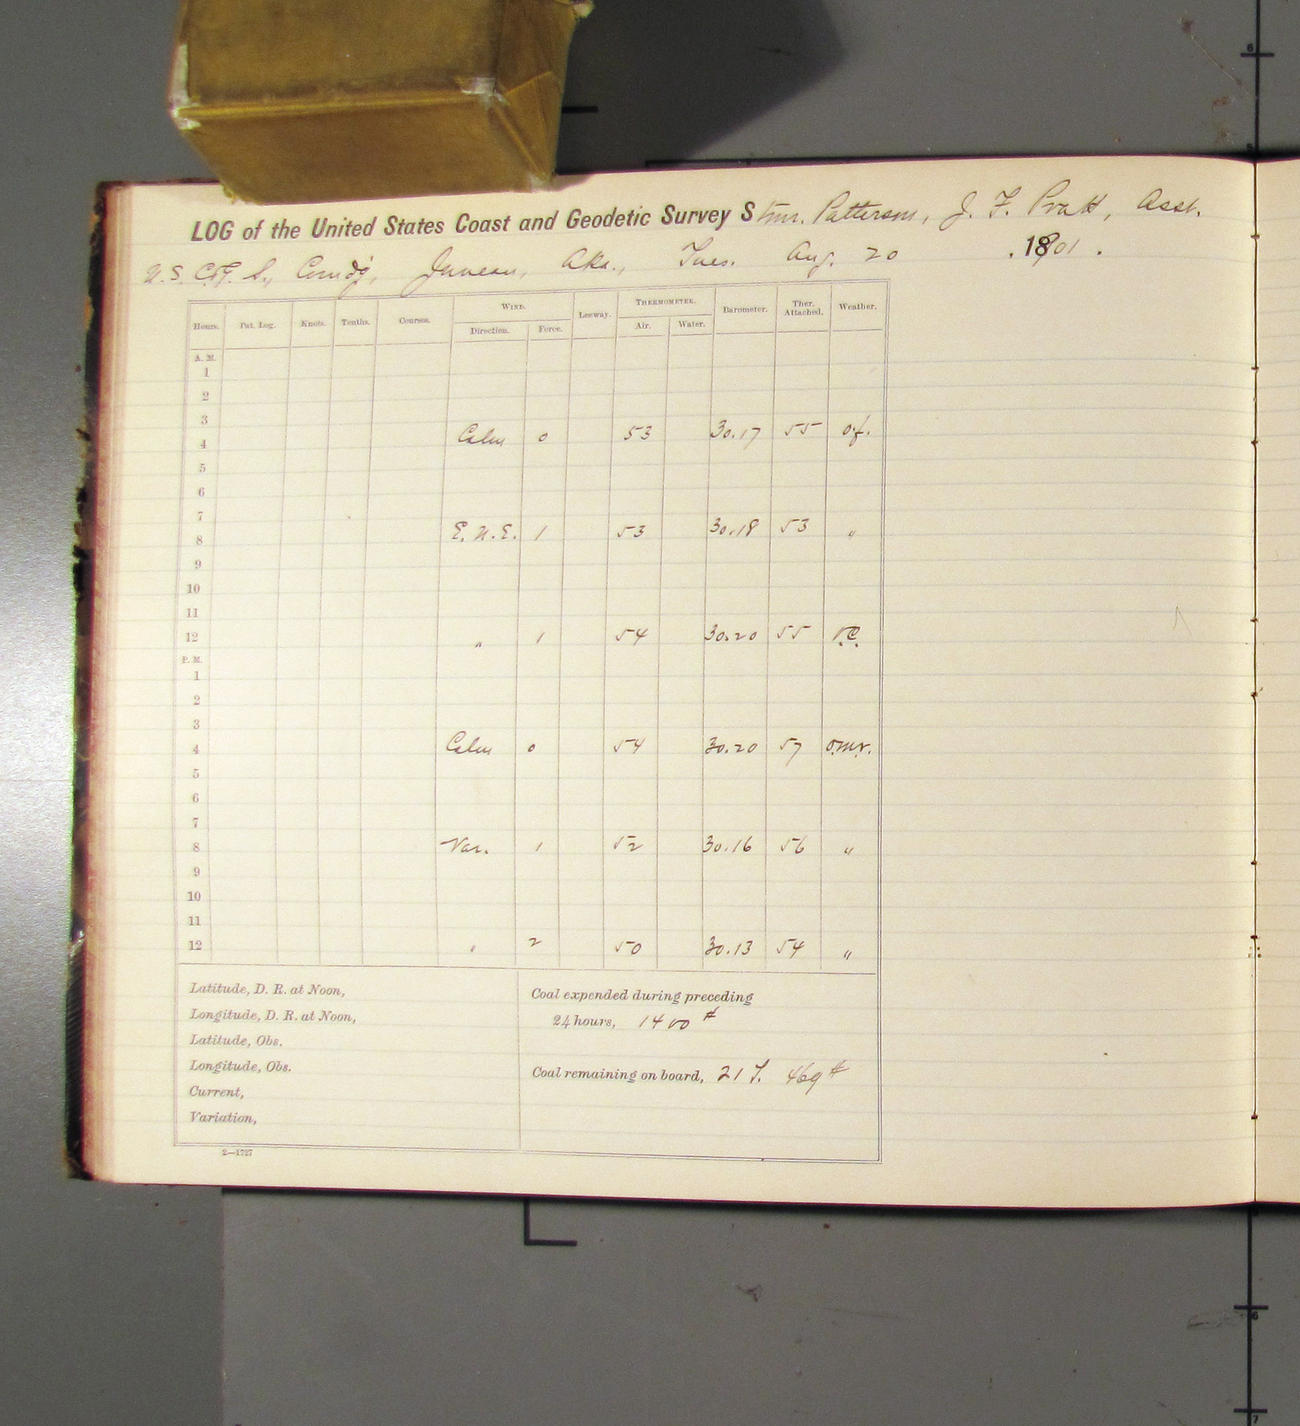 LOG of the United States Coast and Geodetic Survey Stmr. Patterson, J. F. Pratt, Asst.
U.S. C.&G. S., Comd'g, Juneau, Aka., Tues. Aug. 20 , 1901 .
Hours. Pat. Log. Knots. Tenths. Courses. WIND. Direction. Force. Leeway. THERMOMETER. Air. Water. Barometer. Ther. Attached. Weather.
A. M.
1
2
3
4 Calm 0 53 30.17 55 o.f.
5
6
7
8 E.N.E. 1 53 30.18 53 "
9
10
11
12 " 1 54 30.20 55
P. M.
1
2
3
4 Calm 0 54 30.20 57 o.m.r.
5
6
7
8 Var. 1 52 30.16 56 "
9
10
11
12 " 2 50 30.13 54 "
Latitude, D. R. at Noon,
Longitude, D. R. at Noon,
Latitude, Obs.
Longitude, Obs.
Current,
Variation,
Coal expended during preceding
24 hours, 1400 #
Coal remaining on board, 21 T. 469 #
2—1727
6
6
7